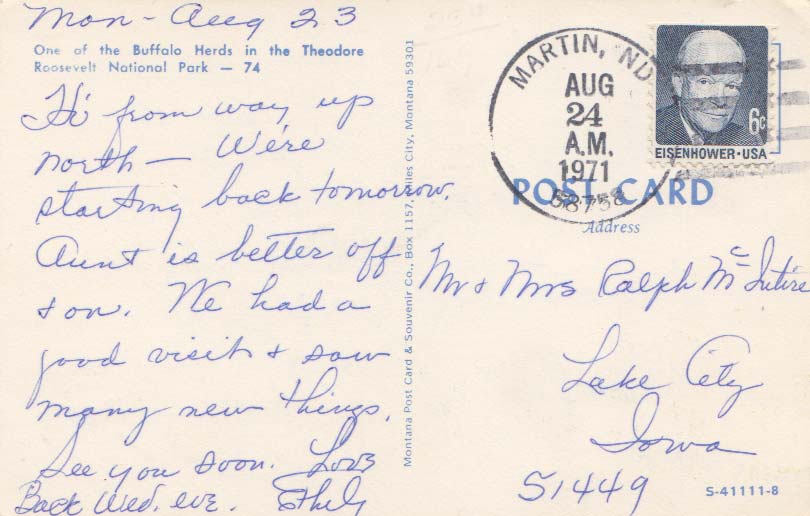 Mon - Aug 23
One of the Buffalo Herds in the Theodore
Roosevelt National Park — 74
Hi from way up
north — We're
starting back tomorrow.
Aunt is better off
& on. We had a
good visit & saw
many new things.
See you soon. Love
Back Wed. eve.
Montana Post Card & Souvenir Co., Box 1157, Miles City, Montana 59301
MARTIN, ND
AUG
24
A.M.
1971
58758
6c
EISENHOWER · USA
POST CARD
Address
Mr & Mrs Ralph McIntire
Lake City
Iowa
51449
S-41111-8